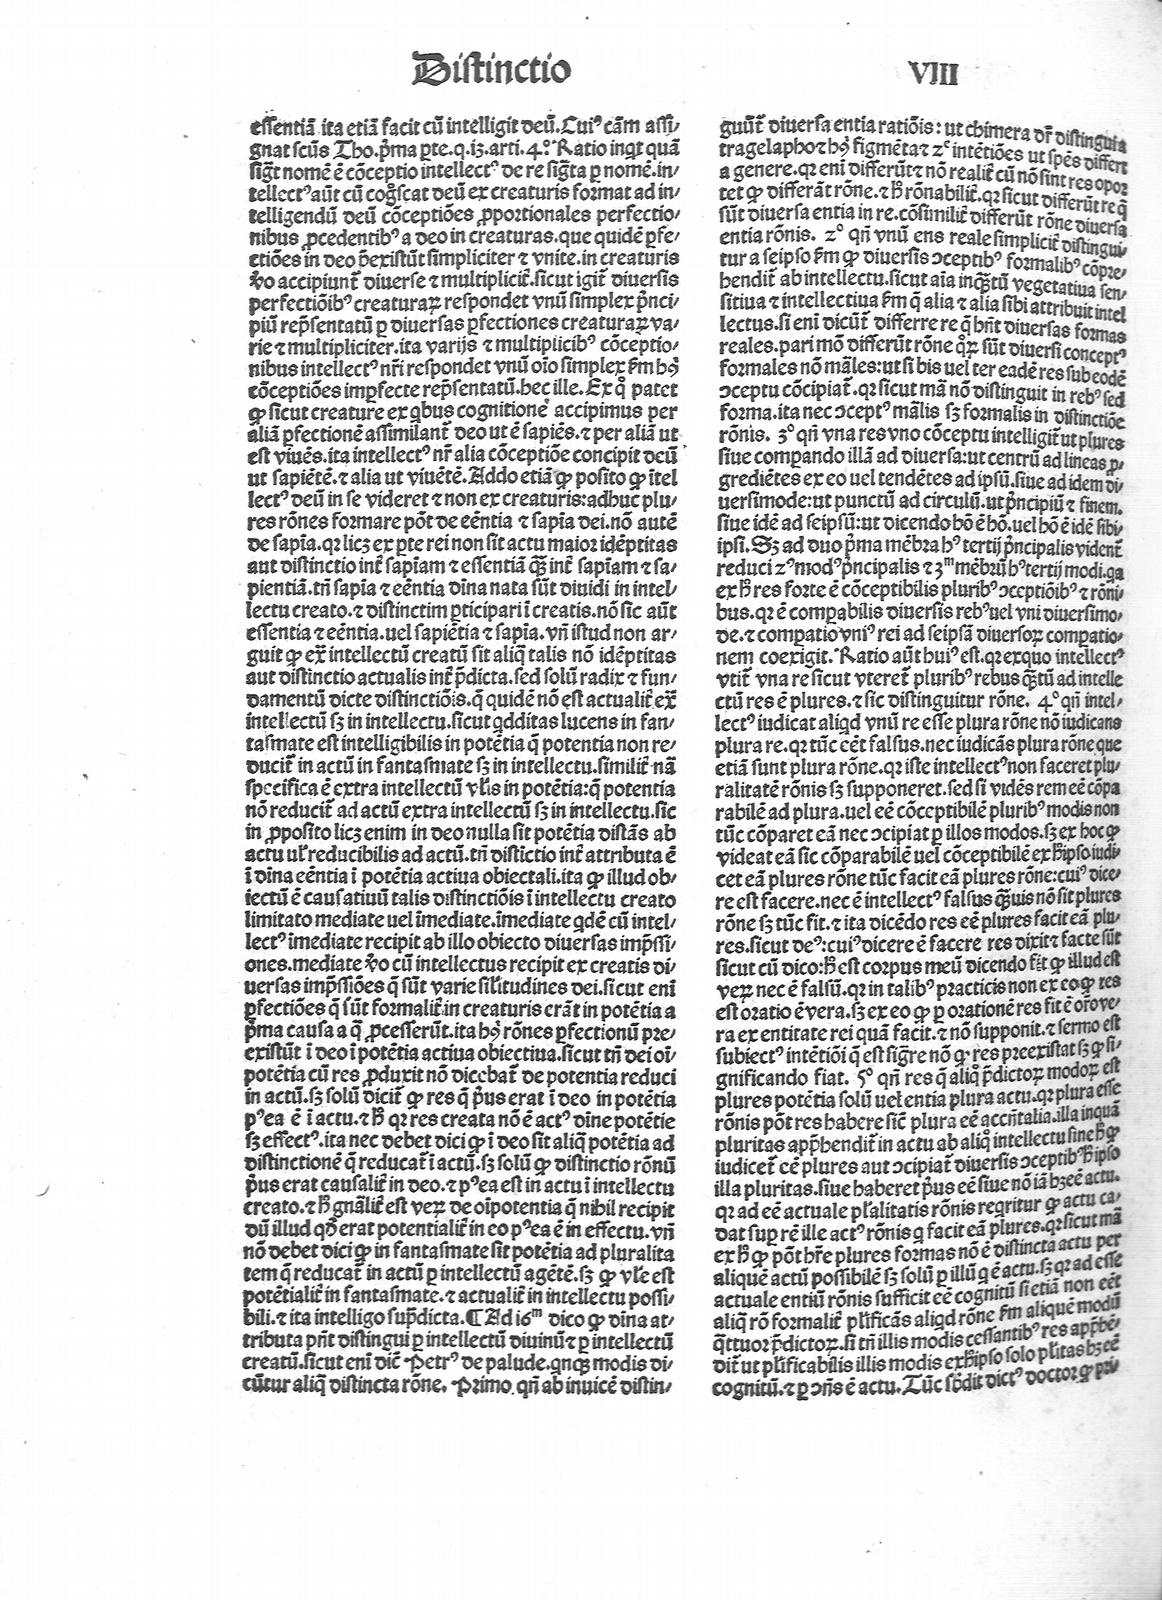 Distinctio
VIII
essentiā ita etiā facit cū intelligit deū. Cuiꝰ cām assi/
gnat scūs Tho. p̄ma ꝑte. q. i3. arti. 4°. Ratio inq̇t quā
sigt̄ nomē ē cōceptio intellectꝰ de re sigt̄a ꝑ nomē. in/
tellectꝰ aūt cū cog̃scat deū ex creaturis format ad in/
telligendū deū cōceptiōes ꝓportionales perfectio/
nibus ꝓcedentibꝰ a deo in creaturas. que quidē ꝑfe/
ctiōes in deo p̄existūt simpliciter ⁊ vnite. in creaturis
v̊o accipiunt᷑ diuerse ⁊ multiplicit᷑. sicut igit᷑ diuersis
perfectiōibꝰ creaturaꝝ respondet vnū simplex p̄nci/
piū rep̄sentatū ꝑ diuersas ꝑfectiones creaturaꝝ va/
rie ⁊ multipliciter. ita varijs ⁊ multiplicibꝰ cōceptio/
nibus intellectꝰ nr̄i respondet vnū oīo simplex ẜm hꝰ
cōceptiōes imꝑfecte rep̄sentatū. hec ille. Ex q̊ patet
ꝙ sicut creature ex q̇bus cognitionē accipimus per
aliā ꝑfectionē assimilant᷑ deo ut ē sapiēs. ⁊ per aliā ut
est viuēs. ita intellectꝰ nr̄ alia cōceptiōe concipit deū
ut sapiētē. ⁊ alia ut viuētē. Addo etiā ꝙ posito ꝙ ītel
lectꝰ deū in se videret ⁊ non ex creaturis: adhuc plu/
res rōnes formare pōt de eēntia ⁊ sapīa dei. nō autē
de sapīa. qꝛ licꝫ ex ꝑte rei non sit actu maior idēptitas
aut distinctio int᷑ sapīam ⁊ essentiā q̄ꝫ int᷑ sapīam ⁊ sa/
pientiā. tn̄ sapīa ⁊ eēntia dīna nata sūt diuidi in intel/
lectu creato. ⁊ distinctim ꝑticipari ī creatis. nō sic aūt
essentia ⁊ eēntia. uel sapiētia ⁊ sapīa. vn̄ istud non ar/
guit ꝙ ext᷑ intellectū creatū sit aliq̄ talis nō idēptitas
aut distinctio actualis int᷑ p̄dicta. sed solū radix ⁊ fun/
damentū dicte distinctiōis. q̄ quidē nō est actualit᷑ ext᷑
intellectū sꝫ in intellectu. sicut q̇dditas lucens in fan/
tasmate est intelligibilis in potētia q̄ potentia non re/
ducit᷑ in actū in fantasmate sꝫ in intellectu. similit᷑ nā
specifica ē extra intellectū vl̄is in potētia: q̄ potentia
nō reducit᷑ ad actū extra intellectū sꝫ in intellectu. sic
in ꝓposito licꝫ enim in deo nulla sit potētia distās ab
actu ul᷑ reducibilis ad actū. tn̄ distīctio int᷑ attributa ē
ī dīna eēntia ī potētia actiua obiectali. ita ꝙ illud ob/
iectū ē causatiuū talis distinctiōis ī intellectu creato
limitato mediate uel īmediate. īmediate q̇dē cū intel/
lectꝰ īmediate recipit ab illo obiecto diuersas imp̄ssi/
ones. mediate v̊o cū intellectus recipit ex creatis di/
uersas imp̄ssiōes q̄ sūt varie sil̄itudines dei. sicut enī
ꝑfectiōes q̄ sūt formalit᷑ in creaturis erāt in potētia a
p̄ma causa a q̄ ꝓcesserūt. ita hꝰ rōnes ꝑfectionū pre/
existūt ī deo ī potētia actiua obiectiua. sicut tn̄ dei oī/
potētia cū res ꝓduxit nō dicebat᷑ de potentia reduci
in actū. sꝫ solū dicit᷑ ꝙ res q̄ p̄us erat ī deo in potētia
pꝰea ē ī actu. ⁊ ħ qꝛ res creata nō ē actꝰ dīne potētie
sꝫ effectꝰ. ita nec debet dici ꝙ ī deo sit aliq̄ potētia ad
distinctionē q̄ reducat᷑ ī actū. sꝫ solū ꝙ distinctio rōnū
p̄us erat causalit᷑ in deo. ⁊ pꝰea est in actu ī intellectu
creato. ⁊ ħ gn̄alit᷑ est veꝝ de oīpotentia q̄ nihil recipit
dū illud qđ erat potentialit᷑ in eo pꝰea ē in effectu. vn̄
nō debet dici ꝙ in fantasmate sit potētia ad pluralita
tem q̄ reducat᷑ in actū ꝑ intellectū agētē. sꝫ ꝙ vl̄e est
potētialit᷑ in fantasmate. ⁊ actualit᷑ in intellectu possi/
bili. ⁊ ita intelligo sup̄dicta. ¶ Ad i6ᵐ dico ꝙ dīna at/
tributa pn̄t distingui ꝑ intellectū diuinū ⁊ ꝑ intellectū
creatū. sicut enī dic̄ Petrꝰ de palude. qnqꝫ modis di/
cūtur aliq̄ distincta rōne. Primo. qn̄ ab inuicē distin/
guūt᷑ diuersa entia ratiōis: ut chimera dr̄ distinguia
tragelapho ⁊ hꝰ figmēta ⁊ 2ᵉ intētiōes ut spēs differt
a genere. qꝛ enī differūt ⁊ nō realit᷑ cū nō sint res opoꝛ
tet ꝙ differāt rōne. ⁊ ħ rōnabilit᷑. qꝛ sicut differūt re q̄
sūt diuersa entia in re. cōsimilit᷑ differūt rōne diuersa
entia rōnis. 2° qn̄ vnū ens reale simplicit᷑ distingui/
tur a seipso ẜm ꝙ diuersis ↄceptibꝰ formalibꝰ cōpre/
hendit᷑ ab intellectu. sicut aīa inq̄ꝫtū vegetatiua sen/
sitiua ⁊ intellectiua ẜm q̄ alia ⁊ alia sibi attribuit intel
lectus. si enī dicūt᷑ differre re q̄ hn̄t diuersas formas
reales. pari mō differūt rōne q̊ꝝ sūt diuersi conceptꝰ
formales nō māles: ut si bis uel ter eadē res sub eodē
ↄceptu cōcipiat᷑. qꝛ sicut mā nō distinguit in rebꝰ sed
forma. ita nec ↄceptꝰ mālis sꝫ formalis in distinctiōe
rōnis. 3° qn̄ vna res vno cōceptu intelligit᷑ ut plures
siue comꝑando illā ad diuersa: ut centrū ad lineas ꝓ/
gredietes ex eo uel tendētes ad ipsū. siue ad idem di/
uersimode: ut punctū ad circulū. ut p̄ncipiū ⁊ finem.
siue idē ad seipsū: ut dicendo hō ē hō. uel hō ē idē sibi/
ipsi. Sꝫ ad duo p̄ma mēbra hꝰ tertij p̄ncipalis vident᷑
reduci 2ꝰ modꝰ p̄ncipalis ⁊ 3ᵐ mēbꝛū hꝰ tertij modi. qa
ex ħ res forte ē cōceptibilis pluribꝰ ↄceptiōibꝰ ⁊ rōni/
bus. qꝛ ē comꝑabilis diuersis rebꝰ uel vni diuersimo/
de. ⁊ comꝑatio vniꝰ rei ad seipsā diuersoꝝ comꝑatio/
nem coexigit. Ratio aūt huiꝰ est. qꝛ exquo intellectꝰ
vtit᷑ vna re sicut vteret᷑ pluribꝰ rebus q̄ꝫtū ad intelle
ctū res ē plures. ⁊ sic distinguitur rōne. 4° qn̄ intel/
lectꝰ iudicat aliq̇d vnū re esse plura rōne nō iudicans
plura re. qꝛ tūc eēt falsus. nec iudicās plura rōne que
etiā sunt plura rōne. qꝛ iste intellectꝰ non faceret plu/
ralitatē rōnis sꝫ supponeret. sed si vidēs rem eē cōpa
rabilē ad plura. uel eē cōceptibilē pluribꝰ modis non
tūc cōparet eā nec ↄcipiat ꝑ illos modos. sꝫ ex hoc ꝙ
videat eā sic cōparabilē uel cōceptibilē ex ħipso iudi/
cet eā plures rōne tūc facit eā plures rōne: cuiꝰ dice/
re est facere. nec ē intellectꝰ falsus q̄ꝫuis nō sit plures
rōne sꝫ tūc fit. ⁊ ita dicēdo res eē plures facit eā plu/
res. sicut deꝰ: cuiꝰ dicere ē facere res dixit ⁊ facte sūt
sicut cū dico: ħ est corpus meū dicendo fit ꝙ illud est
veꝝ nec ē falsū. qꝛ in talibꝰ practicis non ex eo ꝙ res
est oratio ē vera. sꝫ ex eo ꝙ ꝑ orationē res fit ē or̄o ve/
ra ex entitate rei quā facit. ⁊ nō supponit. ⁊ sermo est
subiectꝰ intētiōi q̄ est sigr̄e nō ꝙ res preexistat sꝫ ꝙ si/
gnificando fiat. 5° qn̄ res q̄ aliq̊ p̄dictoꝝ modoꝝ est
plures potētia solū uel entia plura actu. qꝛ plura esse
rōnis pōt res habere sic᷑ plura eē accn̄talia. illa inquā
pluritas app̄hendit᷑ in actu ab aliq̊ intellectu sine ħ ꝙ
iudicet᷑ eē plures aut ↄcipiat᷑ diuersis ↄceptibꝰ ħ ipso
illa pluritas. siue haberet p̄us eē siue nō iā hꝫ eē actu.
qꝛ ad eē actuale pl᷑alitatis rōnis reqritur ꝙ actu ca/
dat suꝑ rē ille actꝰ rōnis q̇ facit eā plures. qꝛ sicut mā
ex ħ ꝙ pōt hr̄e plures formas nō ē distincta actu per
aliquē actū possibilē sꝫ solū ꝑ illū q̇ ē actu. sꝫ qꝛ ad esse
actuale entiū rōnis sufficit eē cognitū si etiā non eēt
aliq̄ rō formalit᷑ pl᷑ificās aliq̇d rōne ẜm aliquē modū
q̄ttuor p̄dictoꝝ. si tn̄ illis modis cessantibꝰ res app̄hē/
dit᷑ ut pl᷑ificabilis illis modis ex ħ ipso solo pl᷑itas hꝫ eē
cognitū. ⁊ ꝑ ↄn̄s ē actu. Tūc s̄bdit dictꝰ doctor ꝙ pri/